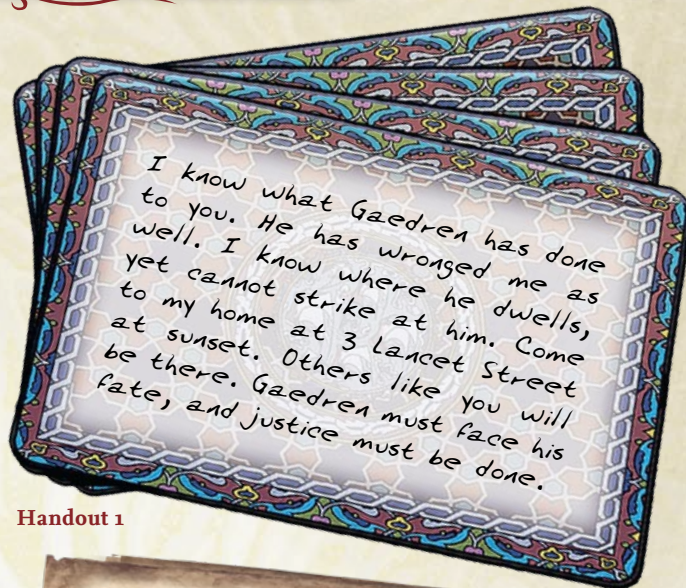 I know what Gaedren has done
to you. He has wronged me as
well. I know where he dwells,
yet cannot strike at him. Come
to my home at 3 Lancet Street
at sunset. Others like you will
be there. Gaedren must face his
fate, and justice must be done.
Handout 1